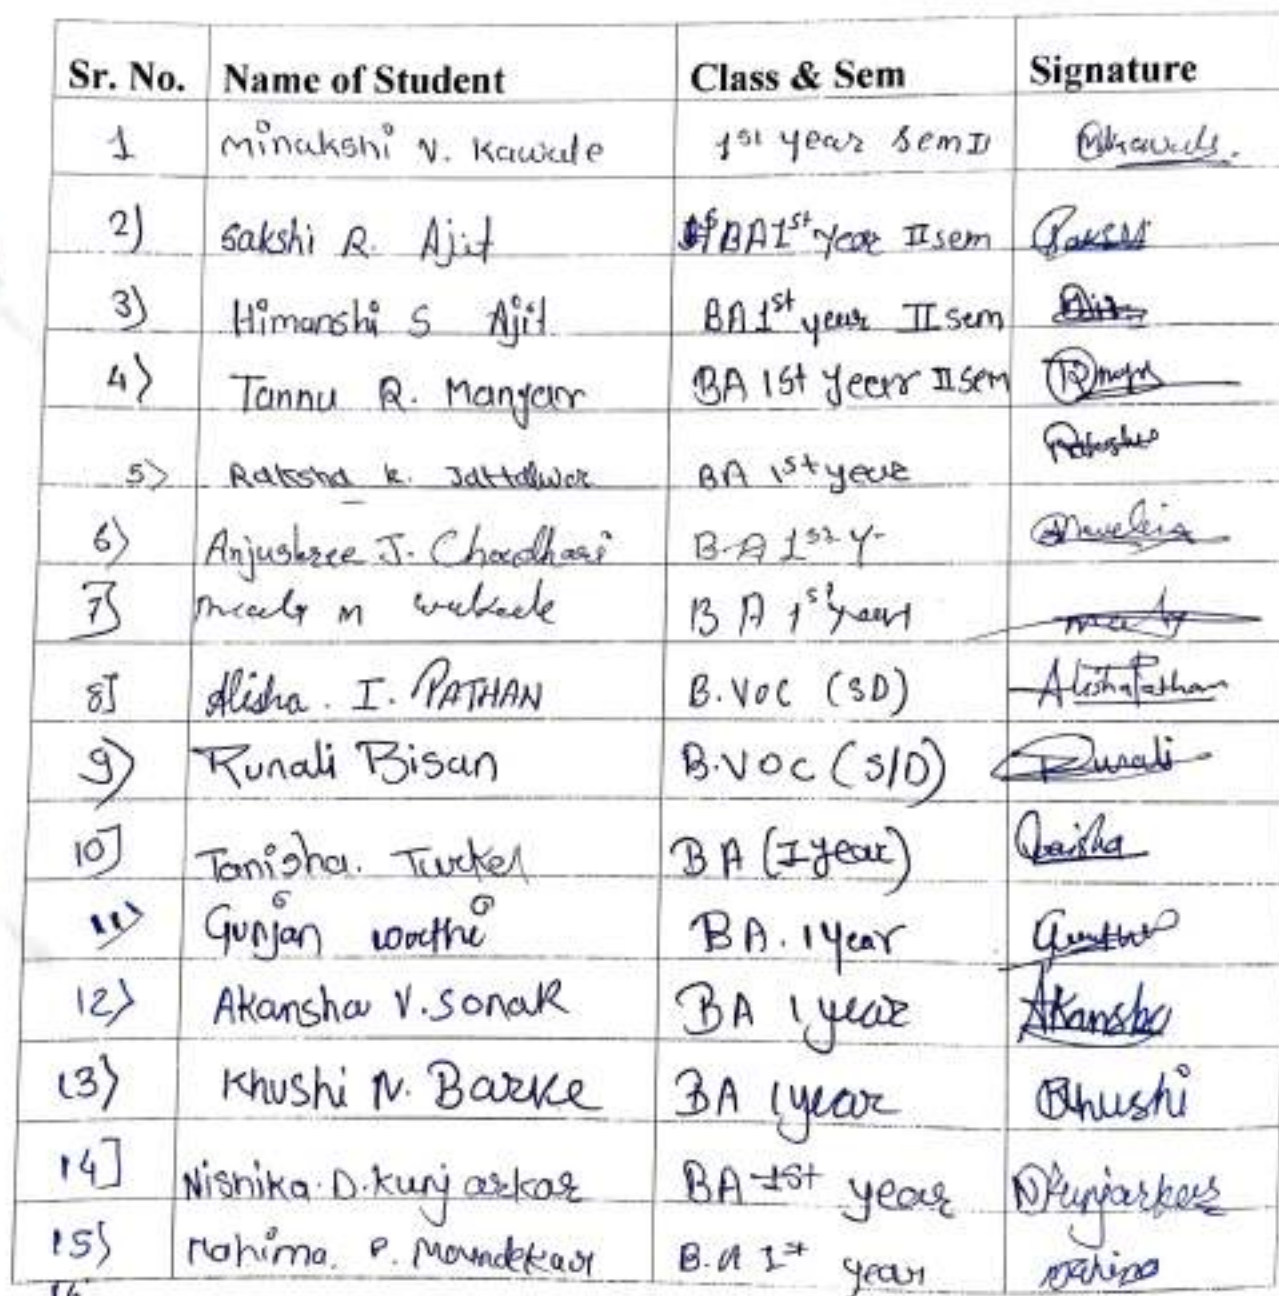 Sr. No. Name of Student Class & Sem Signature
1 Minakshi V. Kawale 1st year Sem II
2) Sakshi R. Ajit BA 1st year II sem Sakshi
3) Himanshi S Ajit BA 1st year II sem
4) Tannu R. Manyar BA 1st year II sem
5) Raksha R. BA 1st year
6) Anjushree J. Choudhari B.A 1st Y-
7] m B A 1st year
8] Alisha. I. PATHAN B.VOC (SD) Alisha Pathan
9) Runali Bisan B.VOC (S/D) Runali
10] Tanisha. Turkel BA (I year)
11) Gunjan BA. 1 year
12) Akansha V. Sonak BA 1 year Akansha
13) Khushi N. Barke BA 1 year Khushi
14] Nishika.D.kunjarkar BA 1st year
15) Mahima. P. Moundekar B.A 1st year Mahima
16